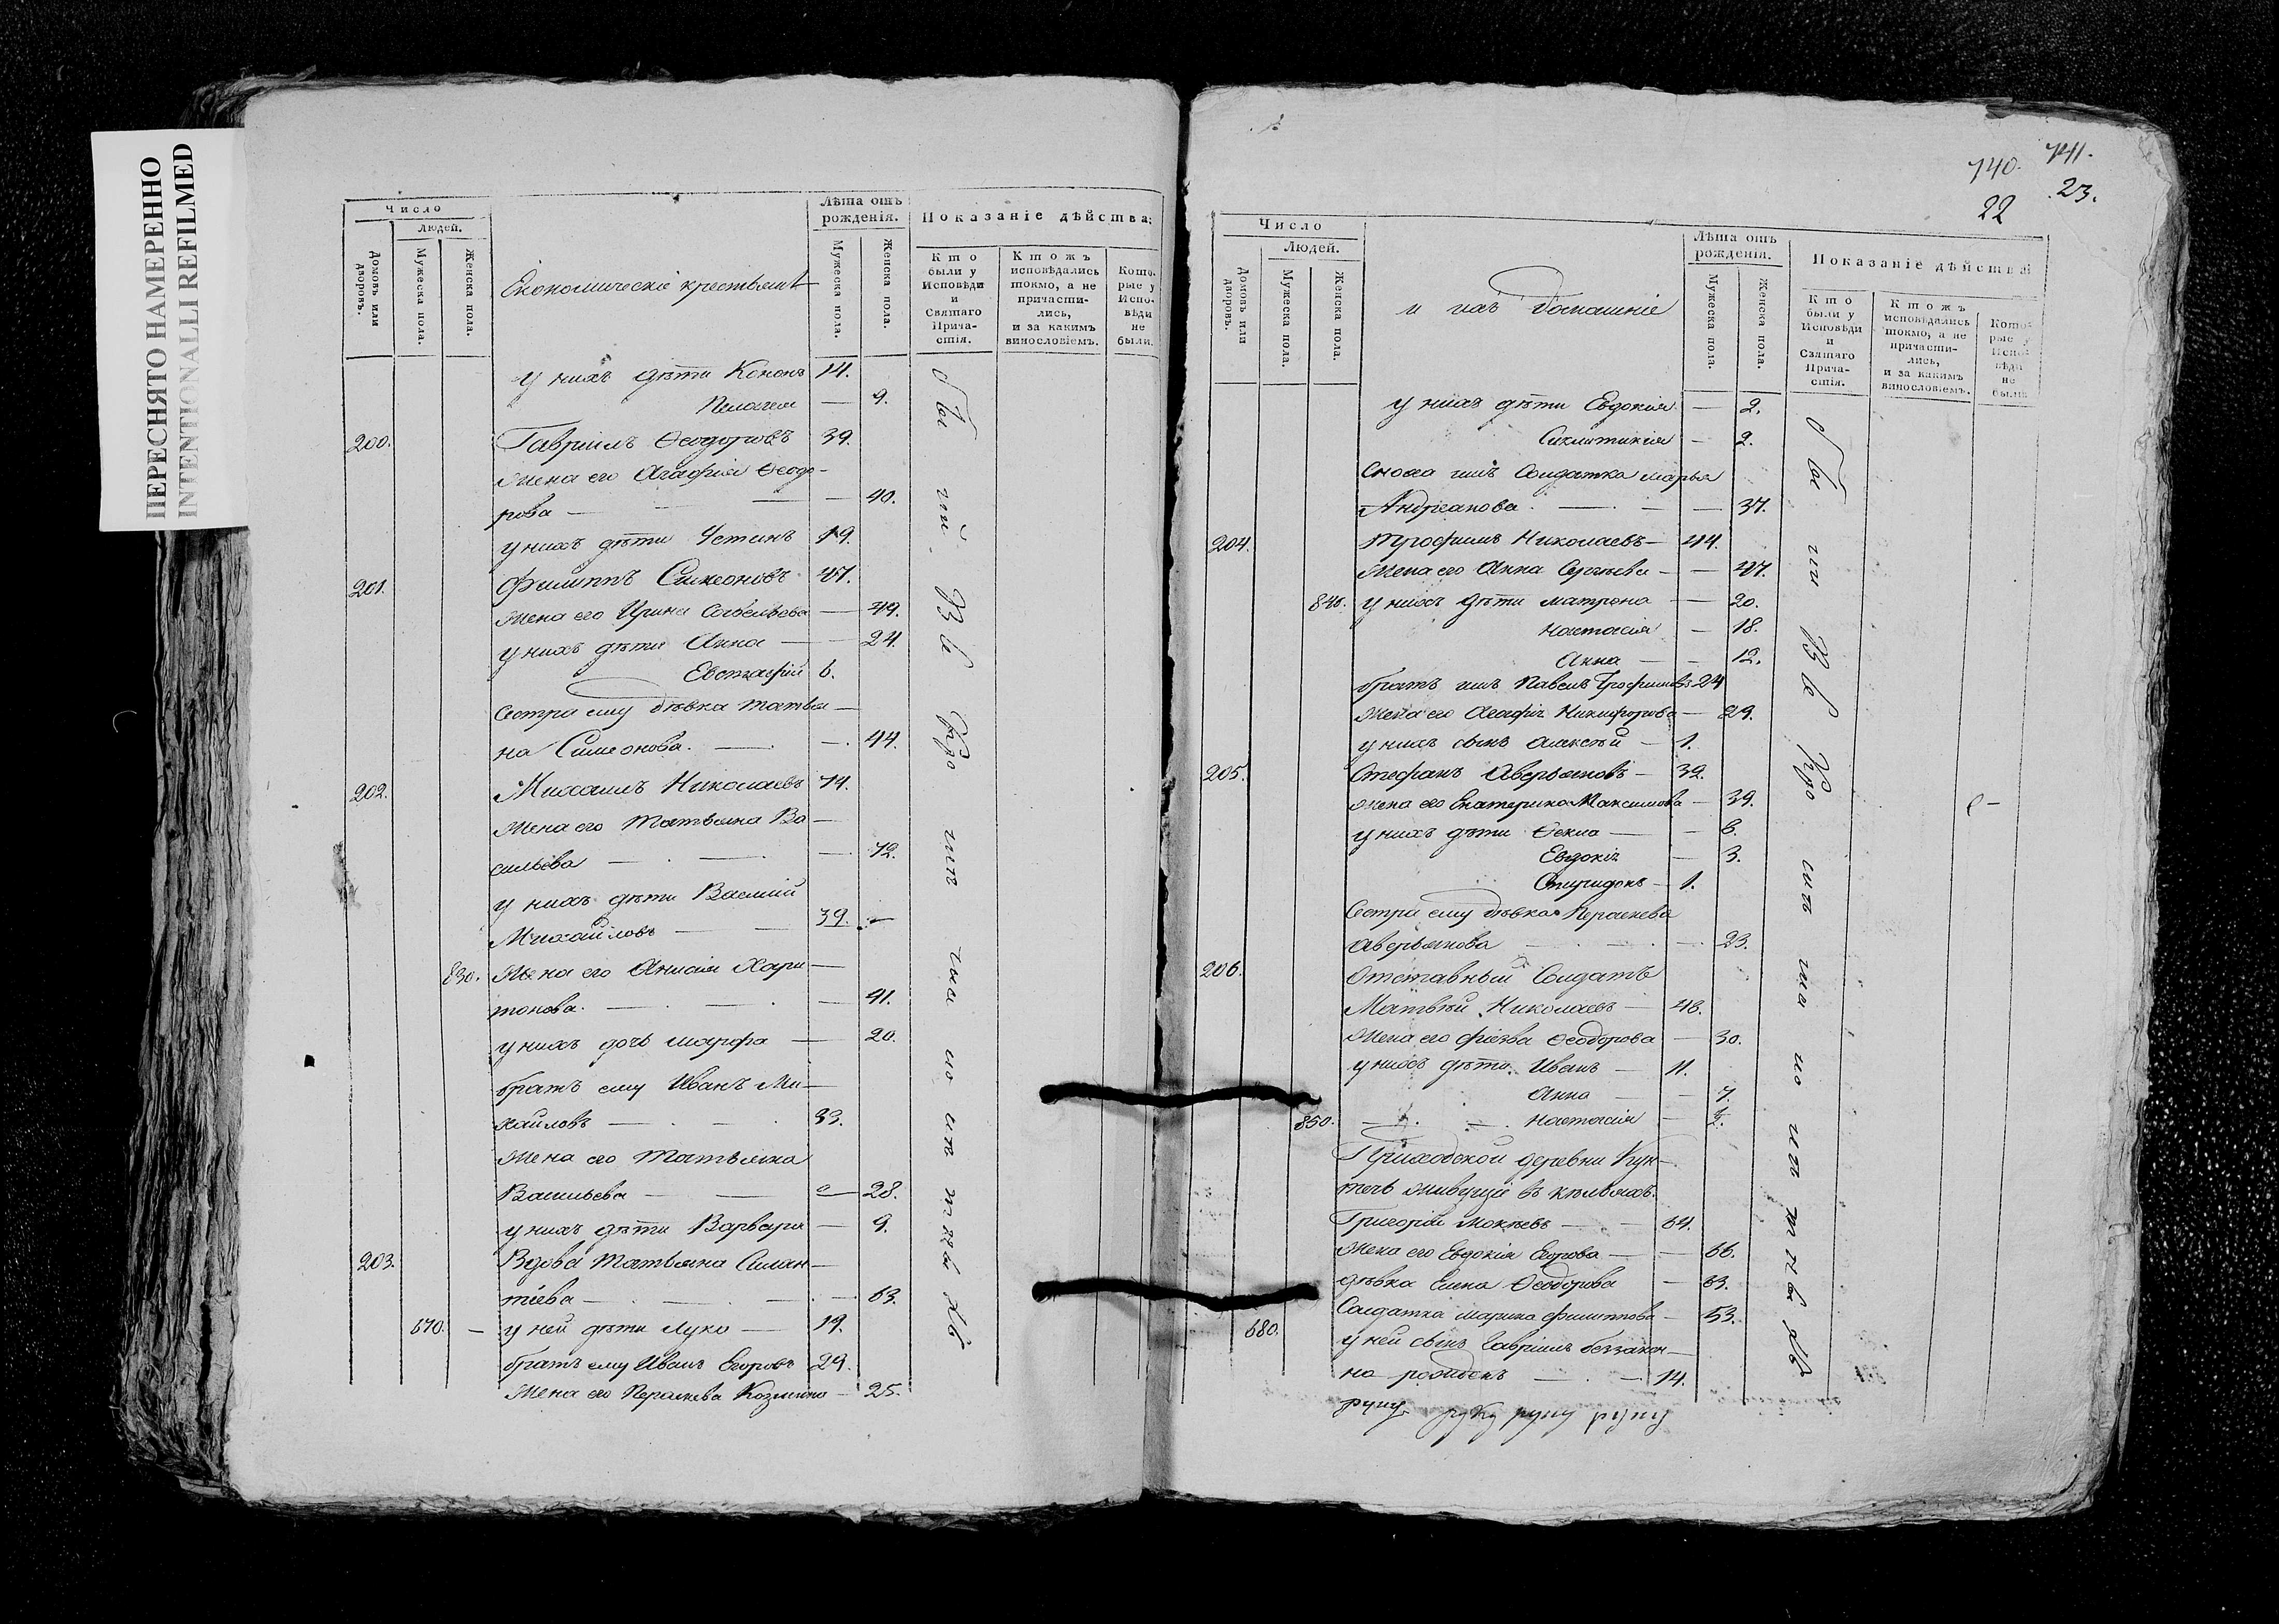 ПЕРЕСНЯТО НАМЕРЕННО
INTENTIONALLI REFILMED
Число
Людей.
Домовъ или дворовъ.
Мужеска пола.
Женска пола.
Економическіе крестьянѣ
Лѣта отъ рожденія.
Мужеска пола.
Женска пола.
Показаніе дѣйства;
Кто были у Исповѣди и Святаго Причастія.
Ктожъ исповѣдались токмо, а не причастились, и за какимъ винословіемъ.
Которые у Исповѣди не были.
у нихъ дѣти Кононъ 14.
Пелагея — 9.
200. Гавріилъ Ѳеодоровъ 39.
Жена его Агафія Ѳеодо-
рова — — — 40.
у нихъ дѣти Устинъ 19.
201. Филиппъ Симеоновъ 47.
Жена его Ирина Савельева — 49.
у нихъ дѣти Анна — — 24.
Евстафій 6.
Сестра ему дѣвка Татья-
на Симеонова. — — 44.
202. Михаилъ Николаевъ 74.
Жена его Татьяна Ва-
сильева — — — 72.
у нихъ дѣти Василій
Михайловъ — — 39. —
830. Жена его Анисія Хари-
тонова. — — — 41.
у нихъ дочь Марфа — 20.
братъ ему Иванъ Ми-
хайловъ — — 33.
Жена его Татьяна
Васильева — — — 28.
у нихъ дѣти Варвара — 9.
203. Вдова Татьяна Силан-
тіева — — — 63.
670. — у ней дѣти Лука — 19.
братъ ему Иванъ Егоровъ 29.
Жена его Параскева Козмина — 25.
740. 741.
22 23.
Число
Людей.
Домовъ или дворовъ.
Мужеска пола.
Женска пола.
и ихъ домашніе
Лѣта отъ рожденія.
Мужеска пола.
Женска пола.
Показаніе дѣйства
Кто были у Исповѣди и Святаго Причастія.
Ктожъ исповѣдались токмо, а не причастились, и за какимъ винословіемъ.
Которые у Исповѣди не были
у нихъ дѣти Евдокія — 2.
Сиклитикія — 2.
Сноха имъ Солдатка Марья
Андреанова. — — — 37.
204. Трофимъ Николаевъ — 44.
Жена его Анна Сергѣева — — 47.
840. у нихъ дѣти Матрона — 20.
Настасія — 18.
Анна — — 12.
братъ имъ Павелъ Трофимовъ 24
Жена его Агафія Никифорова — 29.
у нихъ сынъ Алексѣй — 1.
205. Стефанъ Аверьяновъ — 39.
Жена его Екатерина Максимова — 39.
у нихъ дѣти Ѳекла — — 6.
Евдокія — 3.
Спиридонъ — 1.
Сестра ему дѣвка Параскева
Аверьянова — — — 23.
206. Отставный Солдатъ
Матвѣй Николаевъ — 46.
Жена его Ѳеодорова — 30.
у нихъ дѣти Иванъ — 11.
Анна — — 7.
850. — — Настасія —
Приходской деревни
живущіе въ кѣльяхъ.
Григорій Мокѣевъ — — 64.
Жена его Евдокія Егорова — — 66.
дѣвка Елена Ѳеодорова — 63.
Солдатка Марина Филиппова — 53.
680. у ней сынъ Гавріилъ беззакон-
но рожденъ — — 14.
руку. руку руку руку